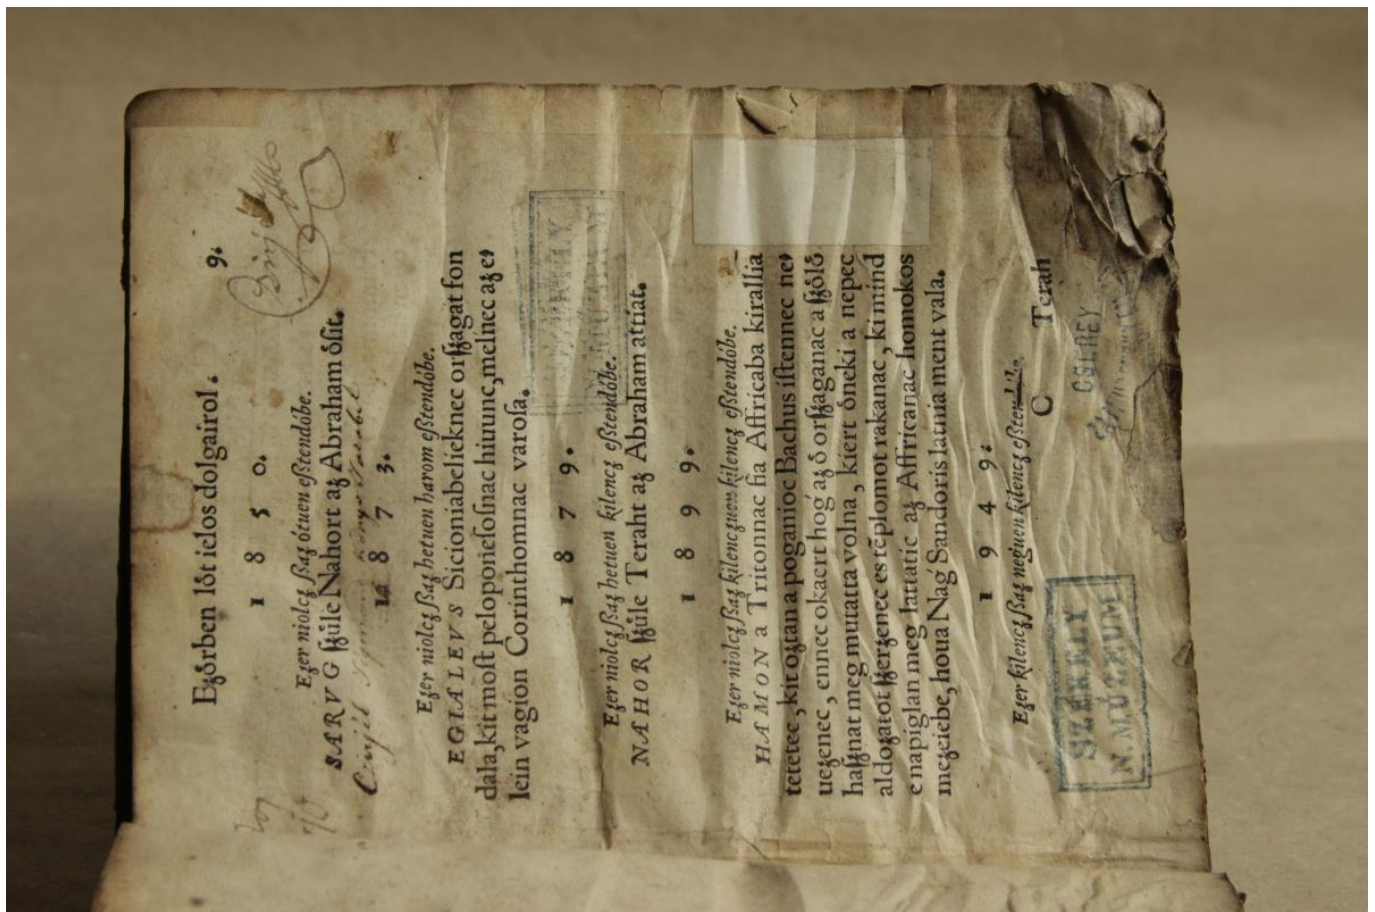 Eʒőrben lőt ielos dolgairol. 9.
1 8 5 0.
Eʒer niolcʒ ßaʒ ötuen eßtendőbe.
SARVG ſʒüle Nahort aʒ Abraham őſit.
1 8 7 3.
Eʒer niolcʒ ßaʒ hetuen harom eßtendőbe.
EGIALEVS Sicioniabelieknec orſʒagat fon
dala, kit moſt peloponieſoſnac hiuunc, melnec aʒ eʼ
lein vagion Corinthomnac varoſa.
1 8 7 9.
Eʒer niolcʒ ßaʒ hetuen kilencʒ eßtendőbe.
NAHOR ſʒüle Teraht aʒ Abraham attiat.
1 8 9 9.
Eʒer niolcʒ ßaʒ kilencʒuen kilencʒ eßtendőbe.
HAMON a Tritonnac fia Affricaba kirallia
tetetec, kit oʒtan a poganioc Bachus iſtennec neʼ
ueʒenec, ennec okaert hoǵ aʒ ő orſʒaganac a ſʒőlő
haſʒnat meg mutatta volna, kiert őneki a nepec
aldoʒatot ſʒerʒenec es tēplomot rakanac, ki mind
e napiglan meg lattatic aʒ Affricanac homokos
meʒeiebe, houa Naǵ Sandoris latnia ment vala.
1 9 4 9.
Eʒer kilencʒ ßaʒ neǵuen kilencʒ
C Terah
SZEKELY
N. MÚZEUM